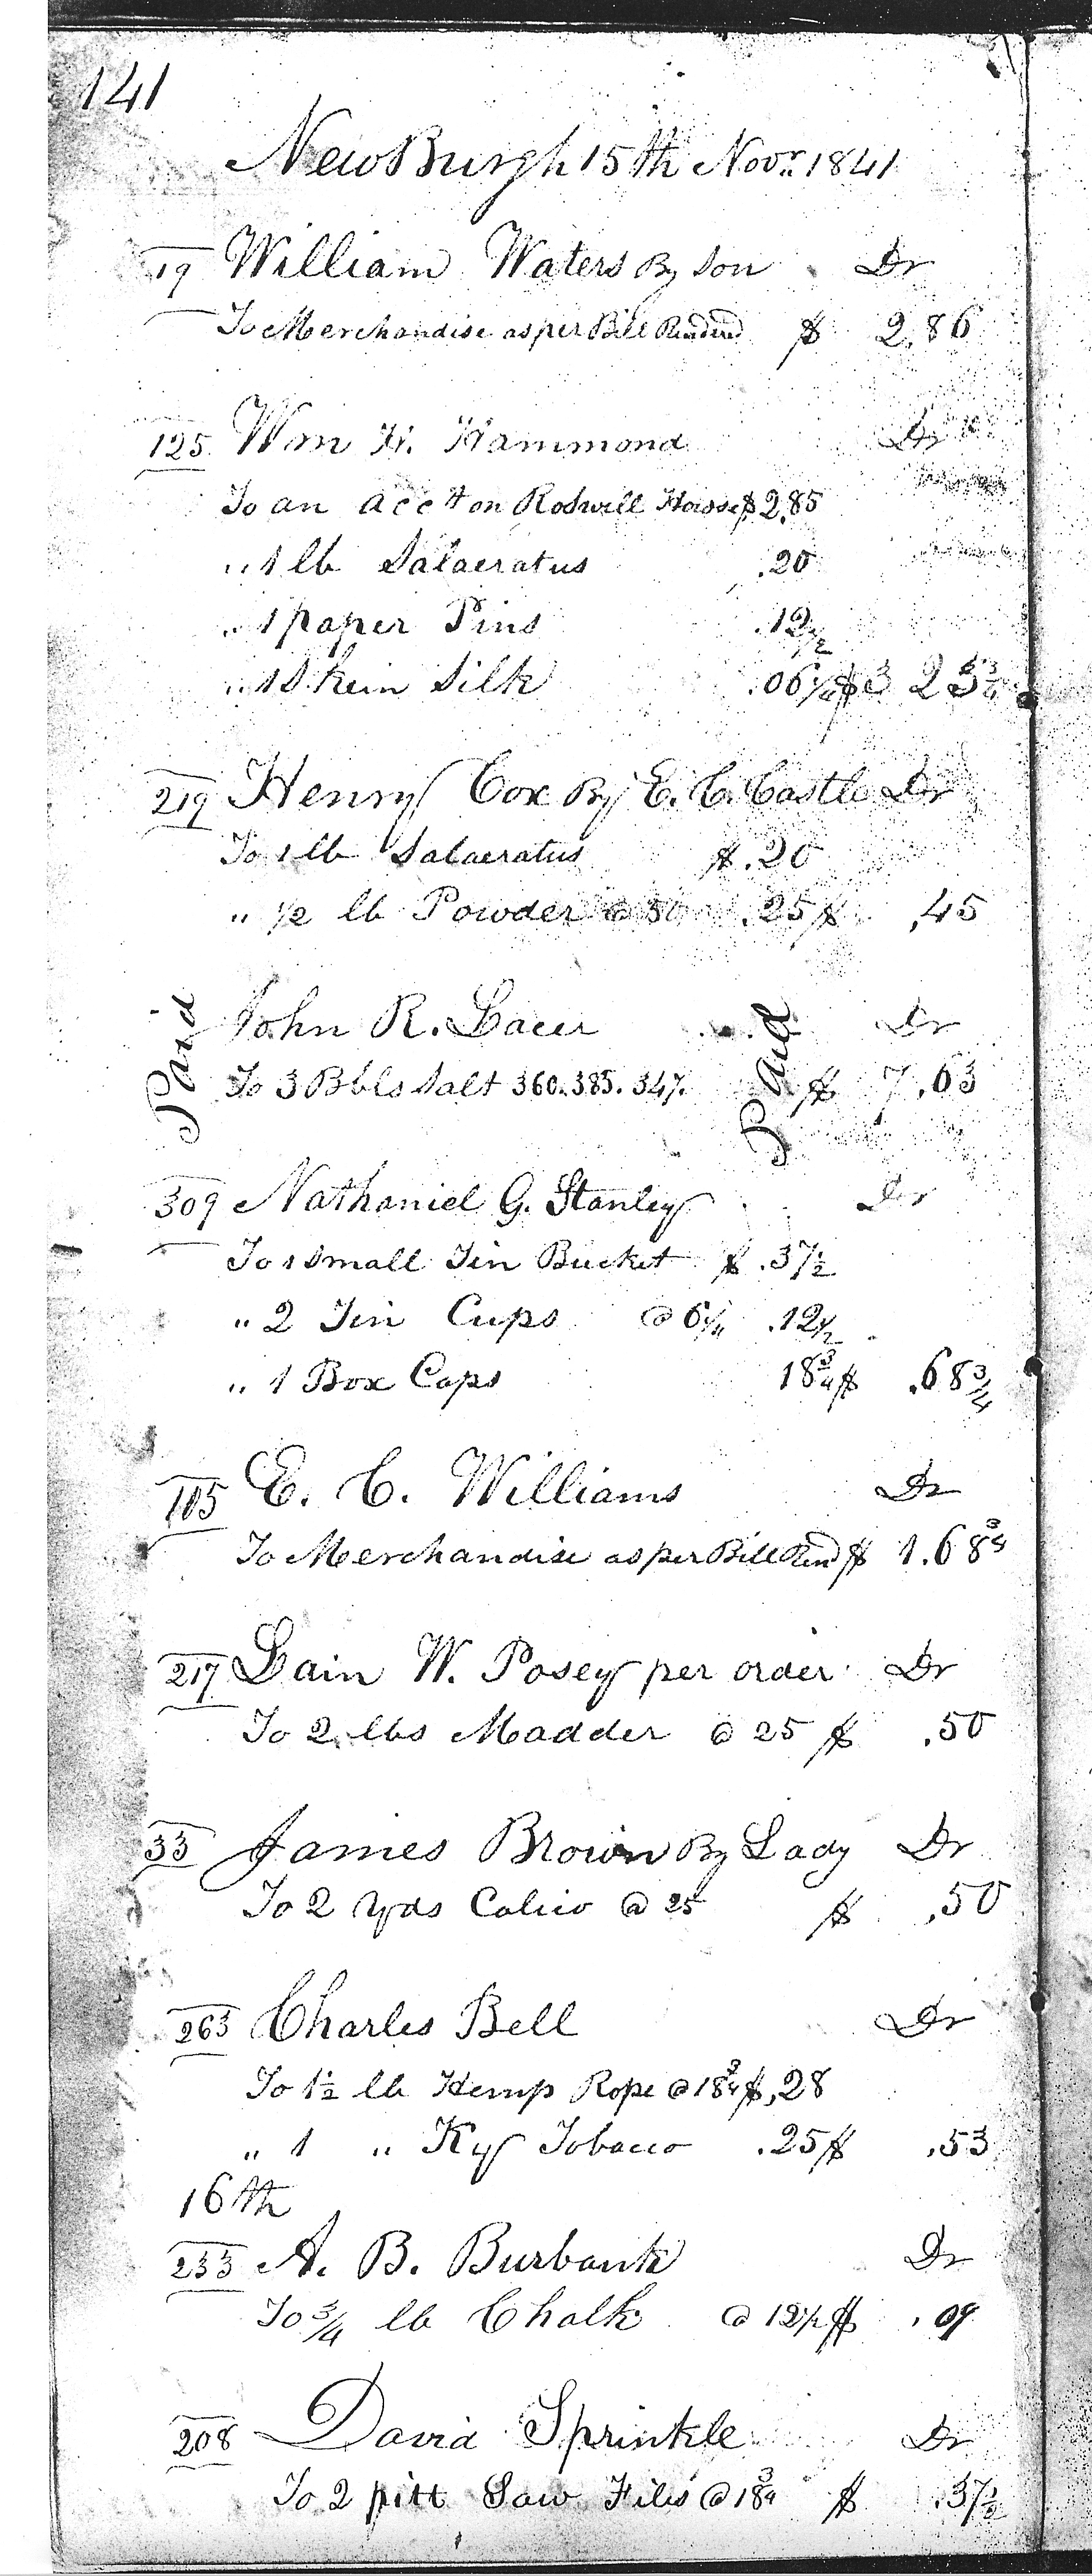 141
NewBurgh 15th Novr. 1841
19 William Waters By Son Dr
To Merchandise as per Bill Rendered $ 2.86
125 Wm H. Hammond Dr
To an acct on Roswill $2.85
" 1 lb Salaeratus .20
" 1 paper Pins .12 1/2
" 1 Skein Silk .06 1/4 $3 23 3/4
219 Henry Cox By E. C. Castle Dr
To 1 lb Salaeratus $.20
" 1/2 lb Powder @ 50 .25 $ .45
Paid John R. Laer Paid Dr
To 3 Bbls Salt 360. 385. 347. $ 7.63
309 Nathaniel G. Stanley Dr
To 1 Small Tin Bucket $ .37 1/2
" 2 Tin Cups @ 6 1/4 .12 1/2
" 1 Box Caps 18 3/4 $ .68 3/4
105 E. C. Williams Dr
To Merchandise as per Bill Rend $ 1.68 3/4
217 Lain W. Posey per order Dr
To 2 lbs Madder @ 25 $ .50
33 James Brown By Lady Dr
To 2 Yds Calico @ 25 $ .50
263 Charles Bell Dr
To 1 1/2 lb Hemp Rope @ 18 3/4 $,28
" 1 " Ky Tobacco .25 $ .53
16th
233 A. B. Burbank Dr
To 3/4 lb Chalk @ 12 1/2 $ .09
208 David Sprinkle Dr
To 2 pitt Saw Files @ 18 3/4 $ .37 1/2